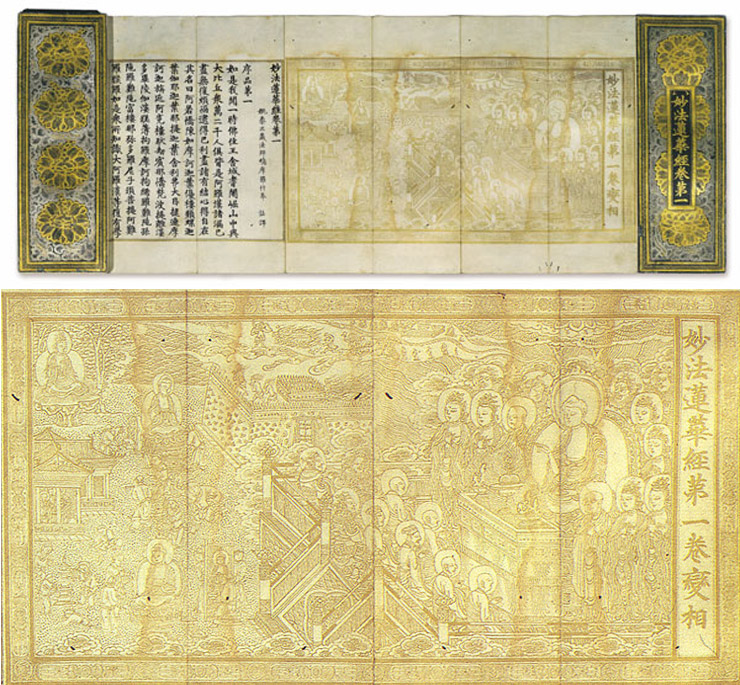 妙法蓮華經卷第一
妙法蓮華經第一卷變相
妙法蓮華經卷第一
姚秦三藏法師鳩摩羅什奉 詔譯
序品第一
如是我聞一時佛住王舍城耆闍崛山中與
大比丘衆萬二千人俱皆是阿羅漢諸漏已
盡無復煩惱逮得己利盡諸有結心得自在
其名曰阿若憍陳如摩訶迦葉優樓頻螺迦
葉伽耶迦葉那提迦葉舍利弗大目揵連摩
訶迦旃延阿㝹樓馱劫賓那憍梵波提離婆
多畢陵伽婆蹉薄拘羅摩訶拘絺羅難陀孫
陀羅難陀富樓那彌多羅尼子須菩提阿難
羅睺羅如是衆所知識大阿羅漢等復有學
妙法蓮華經第一卷變相